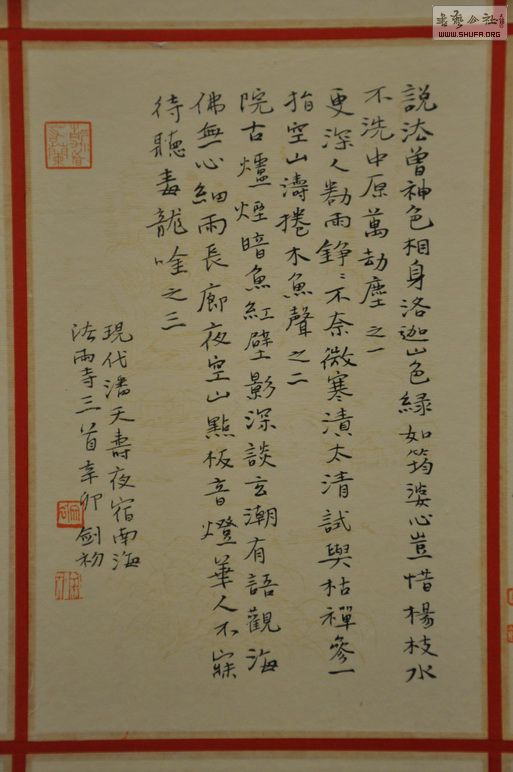 說法曾神色相身洛迦山色綠如筠婆心豈惜楊枝水
不洗中原萬劫塵之一
更深人斵雨錚〻不奈微寒漬太清試與枯禪參一
指空山濤捲木魚聲之二
院古爐煙暗魚紅壁影深談玄潮有語觀海
佛無心細雨長廊夜空山點板音燈華人不寐
待聽毒龍唫之三
現代潘天壽夜宿南海
法雨寺三首辛卯劍初
書藝公社
WWW.SHUFA.ORG